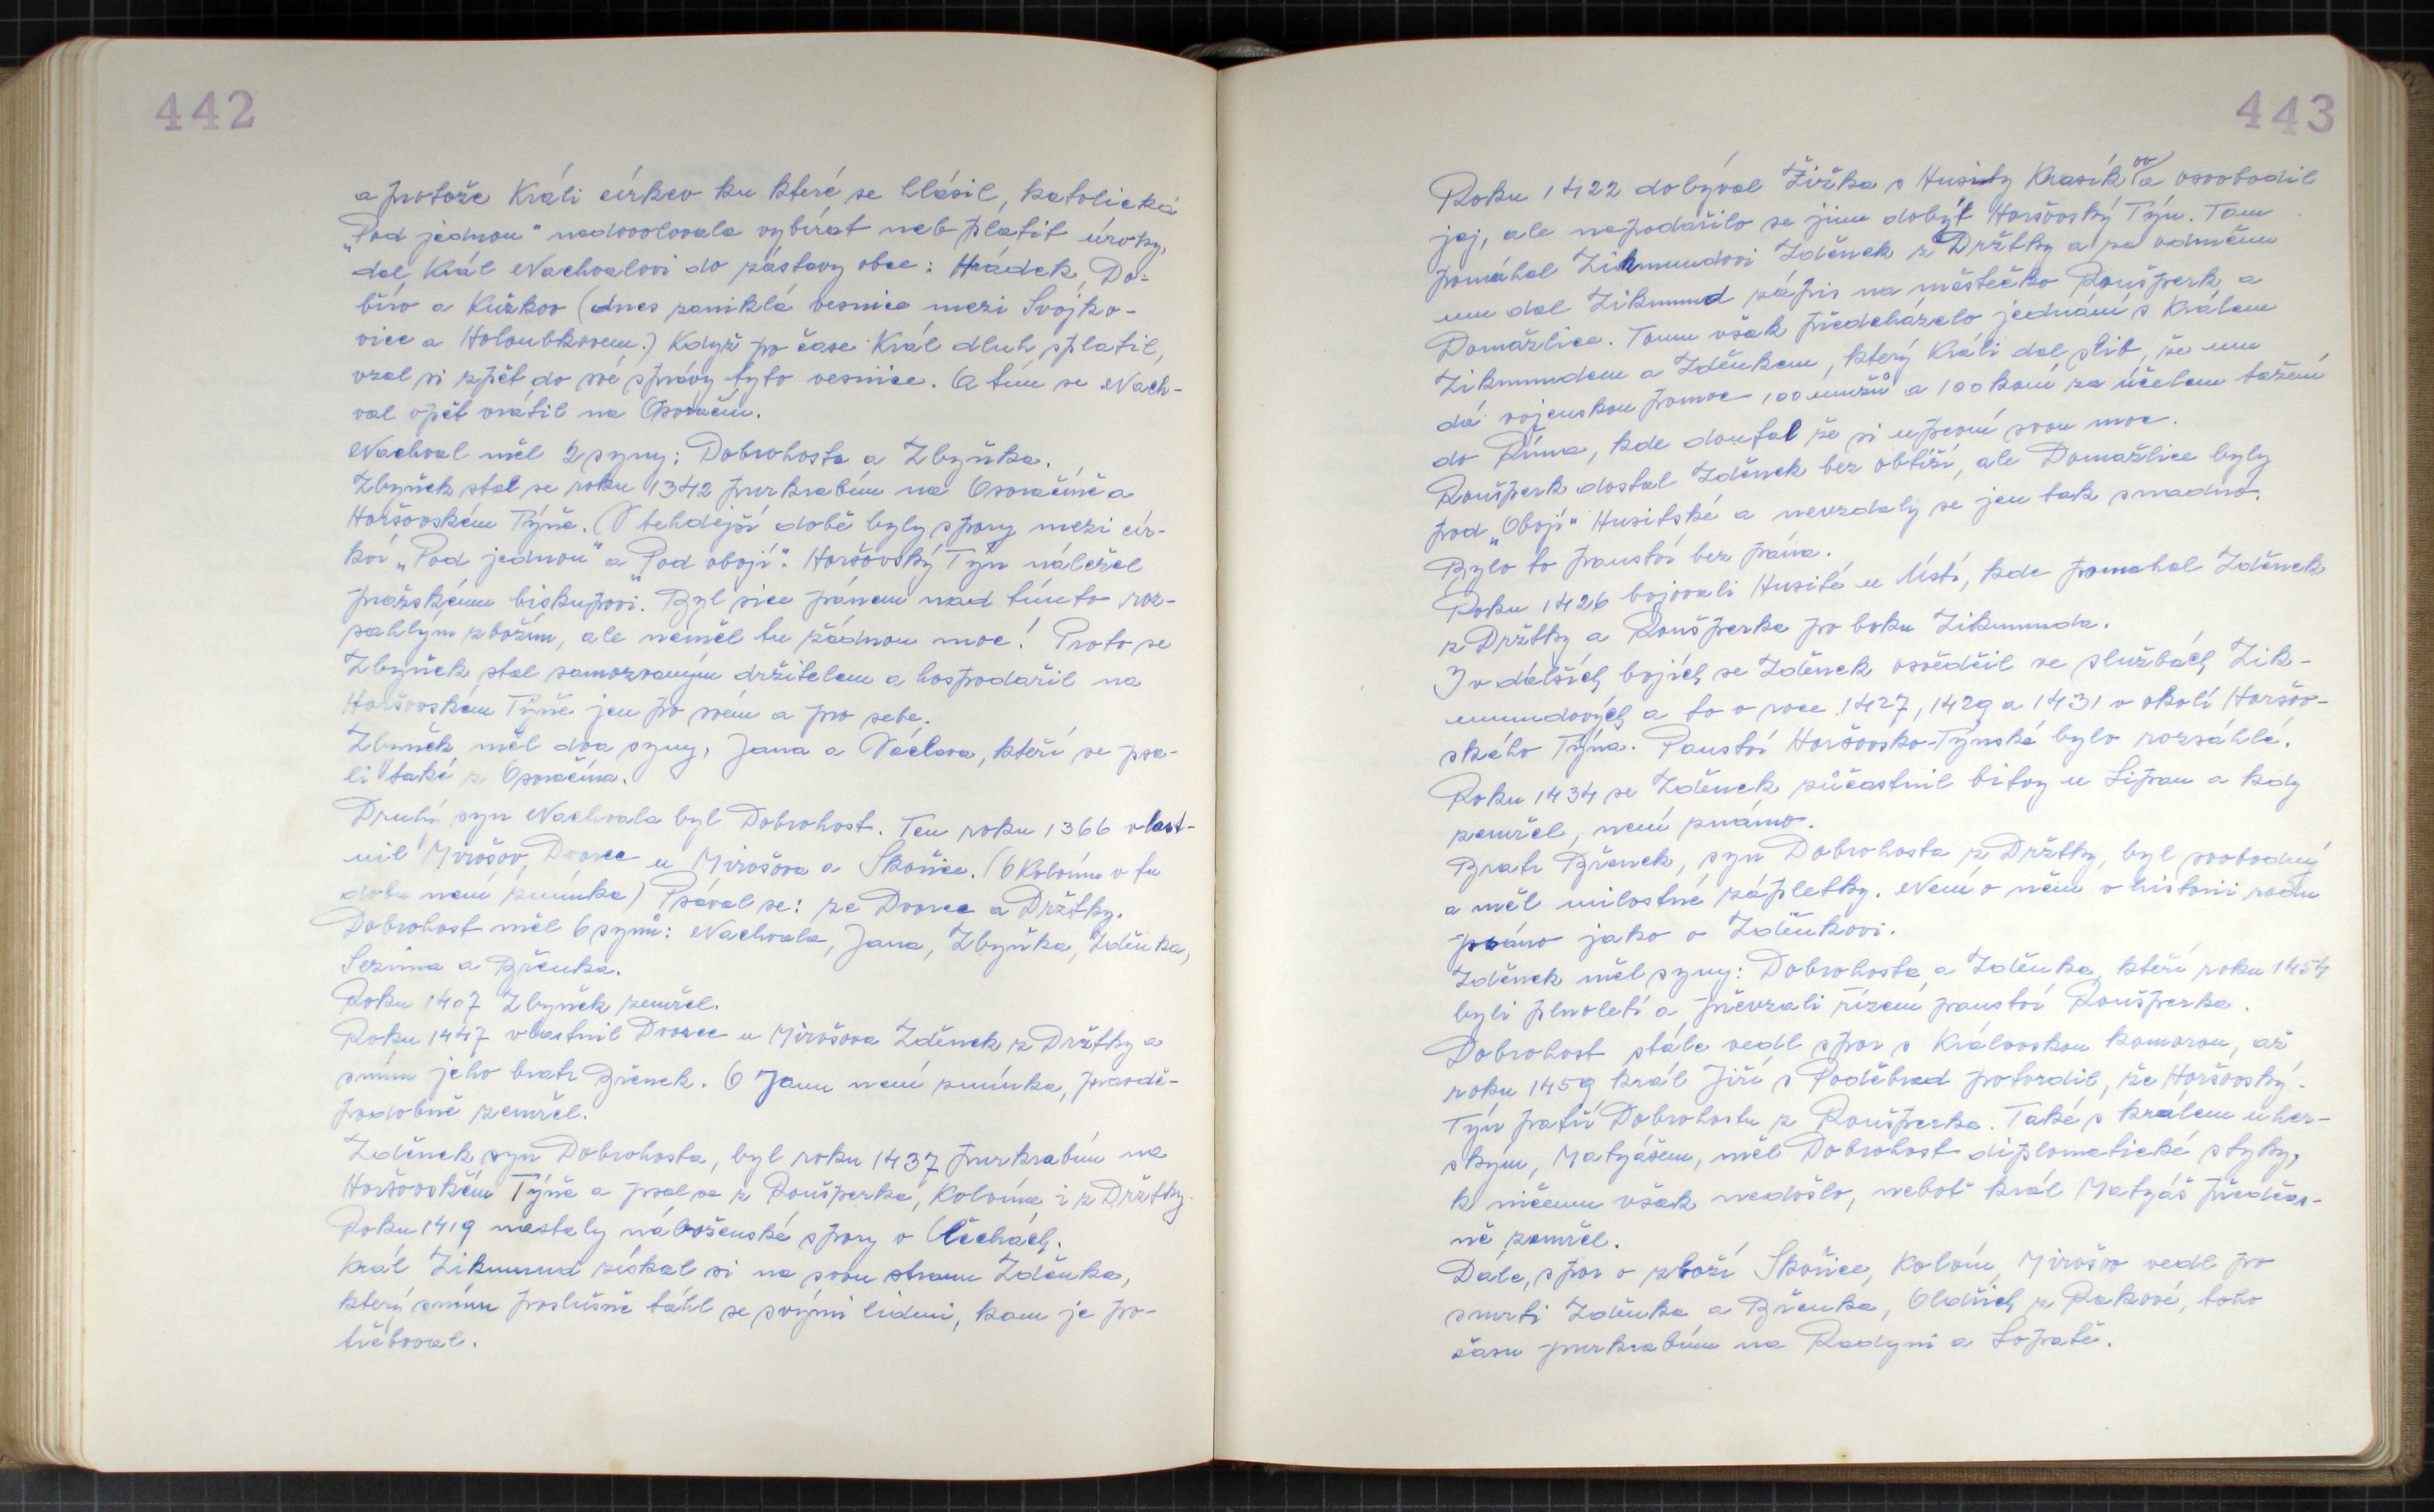 442
a protože Králi církev ku které se hlásil, katolická
„Pod jednou“ nedovolovala vybírat neb platit úroky,
dal Král Nachvalovi do zástavy obce: Hrádek, Do-
břív a Kužkov (dnes zaniklá vesnice mezi Svojko-
vice a Holoubkovem.) Když po čase Král dluh splatil,
vzal si zpět do své správy tyto vesnice. A tím se Nach-
val opět vrátil na Osvračín.
Nachval měl 2 syny: Dobrohosta a Zbyňka.
Zbyněk stal se roku 1342 purkrabím na Osvračíně a
Horšovském Týně. (V tehdejší době byly spory mezi cír-
kví „Pod jednou“ a „Pod obojí“. Horšovský Týn náležel
pražskému biskupovi. Byl sice pánem nad tímto roz-
sáhlým zbožím, ale neměl tu žádnou moc! Proto se
Zbyněk stal samozvaným držitelem a hospodařil na
Horšovském Týně jen po svém a pro sebe.
Zbyněk měl dva syny, Jana a Václava, kteří se psa-
li také z Osvračína.
Druhý syn Nachvala byl Dobrohost. Ten roku 1366 vlast-
nil Mirošov, Dvorec u Mirošova a Skořice. (O Kolvínu v tu
dobu není zmínka) Psával se: ze Dvorce a Držtky.
Dobrohost měl 6 synů: Nachvala, Jana, Zbyňka, Zdeňka,
Sezima a Břeňka.
Roku 1407 Zbyněk zemřel.
Roku 1447 vlastnil Dvorec u Mirošova Zděnek z Držtky a
s ním jeho bratr Břenek. O Janu není zmínka, pravdě-
podobně zemřel.
Zděnek syn Dobrohosta, byl roku 1437 purkrabím na
Horšovském Týně a psal se z Roušperka, Kolvína i z Držtky.
Roku 1419 nastaly náboženské spory v Čechách.
Král Zikmund získal si na svou stranu Zděňka,
který s ním poslušně táhl se svými lidmi, kam je po-
třeboval.
443
Roku 1422 dobýval Žižka s Husity Krasíkov a osvobodil
jej, ale nepodařilo se jim dobýt Horšovský Týn. Tam
pomáhal Zikmundovi Zděnek z Držtky a za odměnu
mu dal Zikmund zápis na městečko Roušperk a
Domažlice. Tomu však předcházelo jednání s Králem
Zikmundem a Zděňkem, který Králi dal slib, že mu
dá vojenskou pomoc 100 mužů a 100 koní za účelem tažení
do Říma, kde doufal že si upevní svou moc.
Roušperk dostal Zděnek bez obtíží, ale Domažlice byly
pod „Obojí“ Husitské a nevzdaly se jen tak snadno.
Bylo to panství bez pána.
Roku 1426 bojovali Husité u Ústí, kde pomahal Zděnek
z Držtky a Roušperka po boku Zikmunda.
I v dalších bojích se Zděnek osvědčil ve službách Zik-
mundových a to v roce 1427, 1429 a 1431 v okolí Horšov-
ského Týna. Panství Horšovsko-Týnské bylo rozsáhlé.
Roku 1434 se Zděnek zúčastnil bitvy u Lipan a kdy
zemřel, není známo.
Bratr Břenek, syn Dobrohosta z Držtky, byl svobodný
a měl milostné zápletky. Není o něm v historii rodu
psáno jako o Zděňkovi.
Zděnek měl syny: Dobrohosta a Zděňka, kteří roku 1454
byli plnoletí a převzali řízení panství Roušperka.
Dobrohost stále vedl spor s Královskou komorou, až
roku 1459 král Jiří s Poděbrad potvrdil, že Horšovský-
Týn patří Dobrohostu z Roušperka. Také s králem uher-
ským, Matyášem, měl Dobrohost diplomatické styky,
k ničemu však nedošlo, neboť král Matyáš předčas-
ně zemřel.
Dále, spor o zboží Skořice, Kolvín, Mirošov vedl po
smrti Zděňka a Břeňka, Oldřich z Rakové, toho
času purkrabím na Radyni a Lopatě.